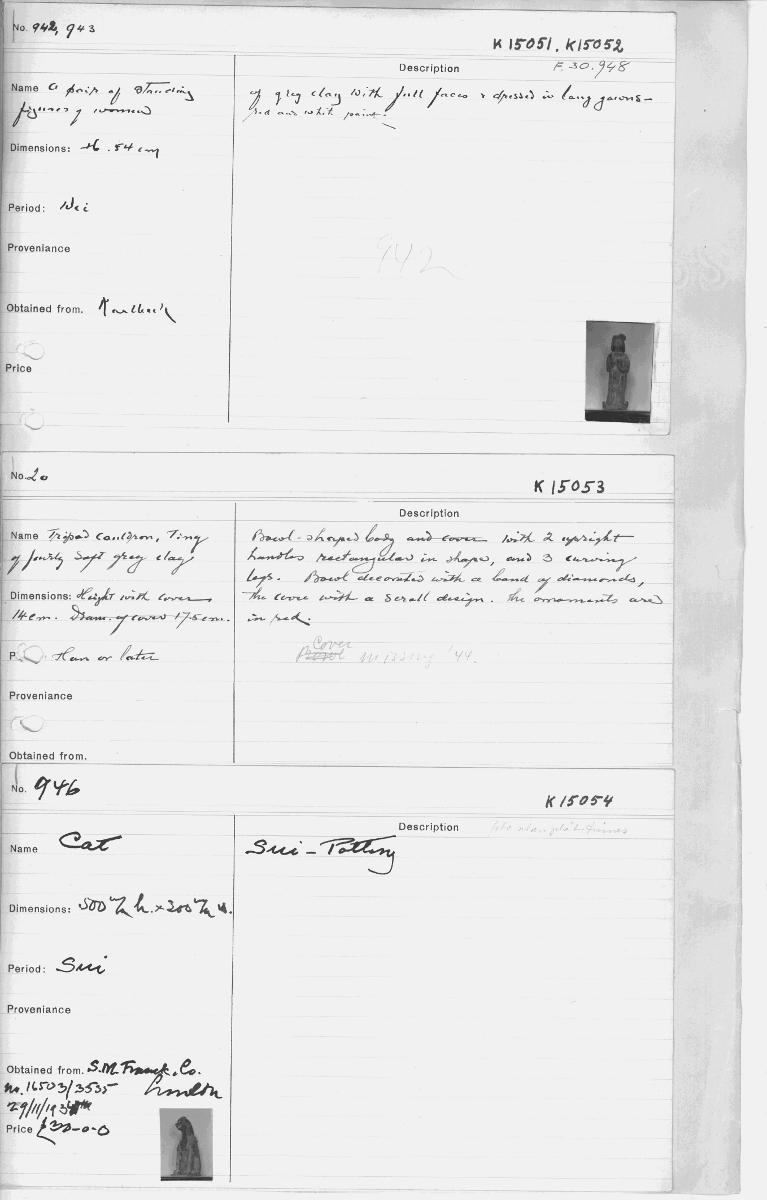 No. 942, 943
K 15051, K15052
Description
F. 30.948
Name A pair of standing
figures of women
of grey clay with full faces & dressed in long gowns –
red and whit paint.
Dimensions: H. 54 cm
Period: Wei
942
Proveniance
Obtained from. Karlbeck
Price
No. 20
K 15053
Description
Name Tripod cauldron, Ting
of fairly soft grey clay
Bowl-shaped body and cover with 2 upright
handles rectangular in shape, and 3 curving
legs. Bowl decorated with a band of diamonds,
the cover with a scroll design. The ornaments are
in red.
Dimensions: Height with cover
14 cm. Diam. of cover 17.5 cm.
Cover
Bowl missing '44.
P Han or later
Proveniance
Obtained from.
No. 946
K 15054
Description
Name Cat
Sui – Pottery
Dimensions: 500 m/m h. x 200 m/m w.
Period: Sui
Proveniance
Obtained from. S.M. Franck, Co.
no. 16503/3535 London
29/11/19
Price £30-0-0